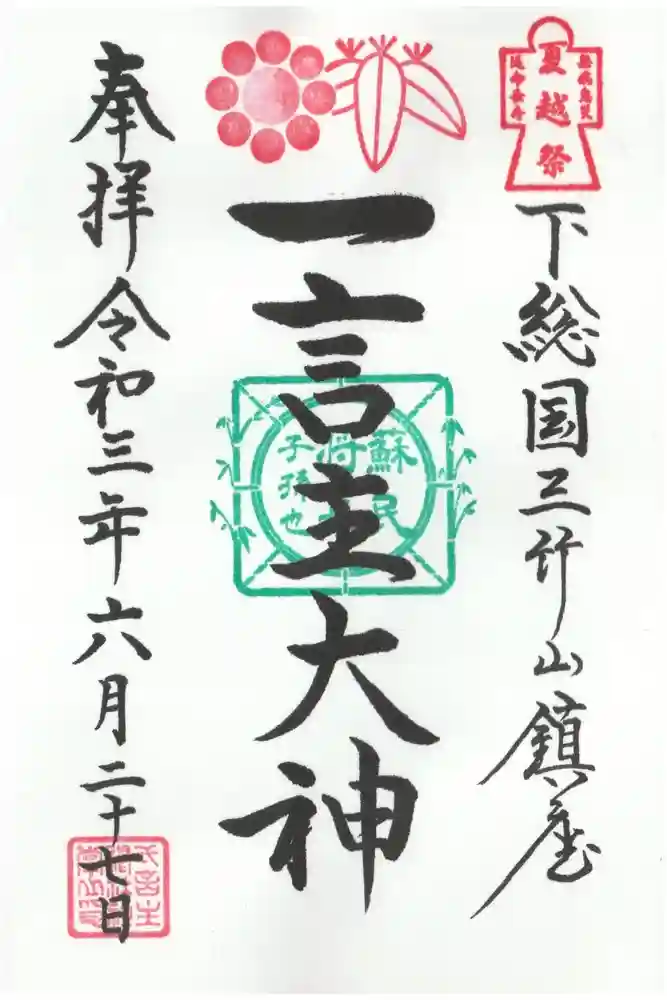 夏越祭
下総国三竹山鎮座
一言主大神
蘇民
将
子孫也
奉拝 令和三年六月二十七日